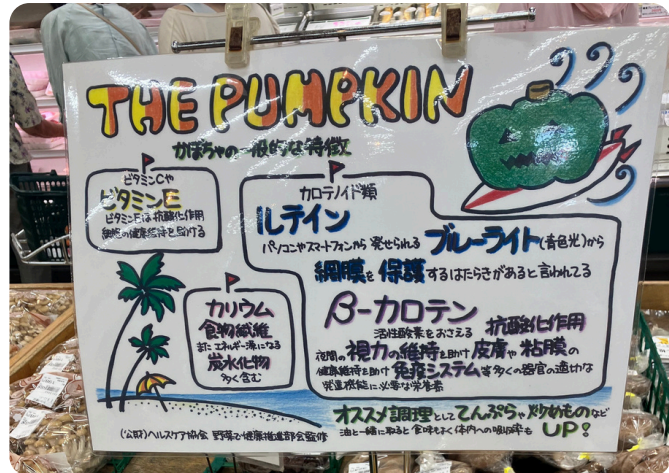 THE PUMPKIN
かぼちゃの一般的な特徴
ビタミンCや
ビタミンE
ビタミンEは抗酸化作用
細胞の健康維持を助ける
カロテノイド類
ルテイン
パソコンやスマートフォンから発せられる
ブルーライト(青色光)から
網膜を保護するはたらきがあると言われてる
β-カロテン
活性酸素をおさえる 抗酸化作用
夜間の視力の維持を助け 皮膚や粘膜の
健康維持を助け 免疫システム等多くの器官の適切な
発達機能に必要な栄養素
カリウム
食物繊維
またエネルギー源になる
炭水化物
多く含む
オススメ調理としててんぷらや炒めものなど
油と一緒に取ると食味もよく体内への吸収率もUP!
(公財)ヘルスケア協会 野菜で健康推進部会監修